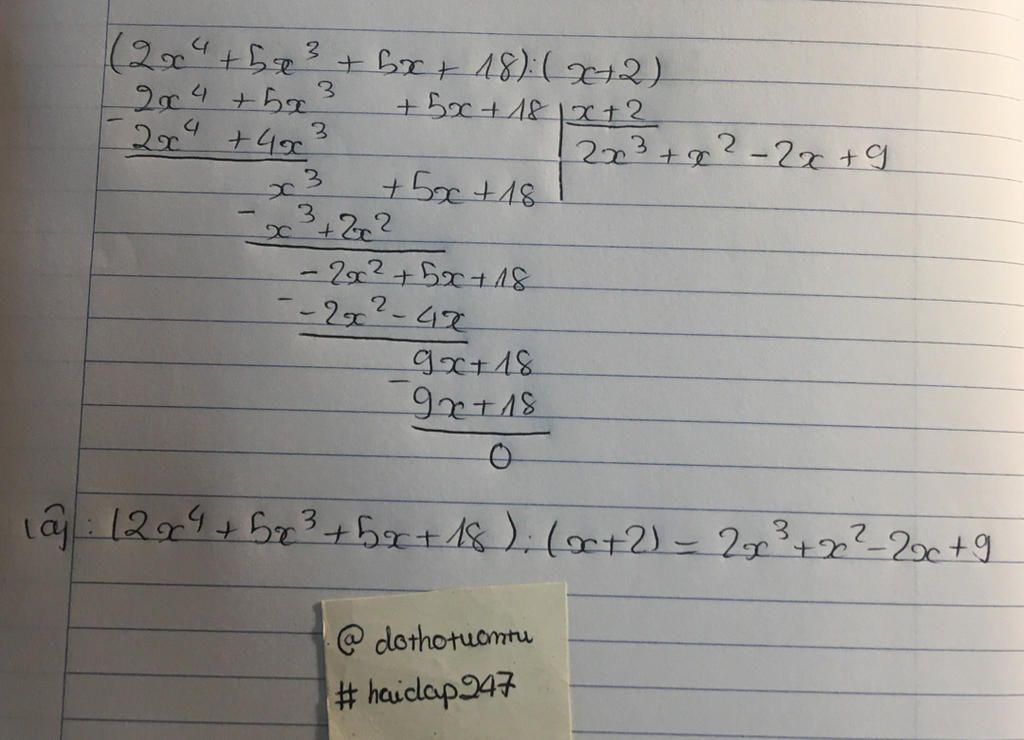 (2x⁴ + 5x³ + 5x + 18) : (x+2)
2x⁴ + 5x³ + 5x + 18 | x+2
- 2x⁴ + 4x³ 2x³ + x² - 2x + 9
x³ + 5x + 18
- x³ + 2x²
- 2x² + 5x + 18
- - 2x² - 4x
9x + 18
- 9x + 18
0
: (2x⁴ + 5x³ + 5x + 18) : (x+2) = 2x³ + x² - 2x + 9
@ dothotuomtu
# hoidap247